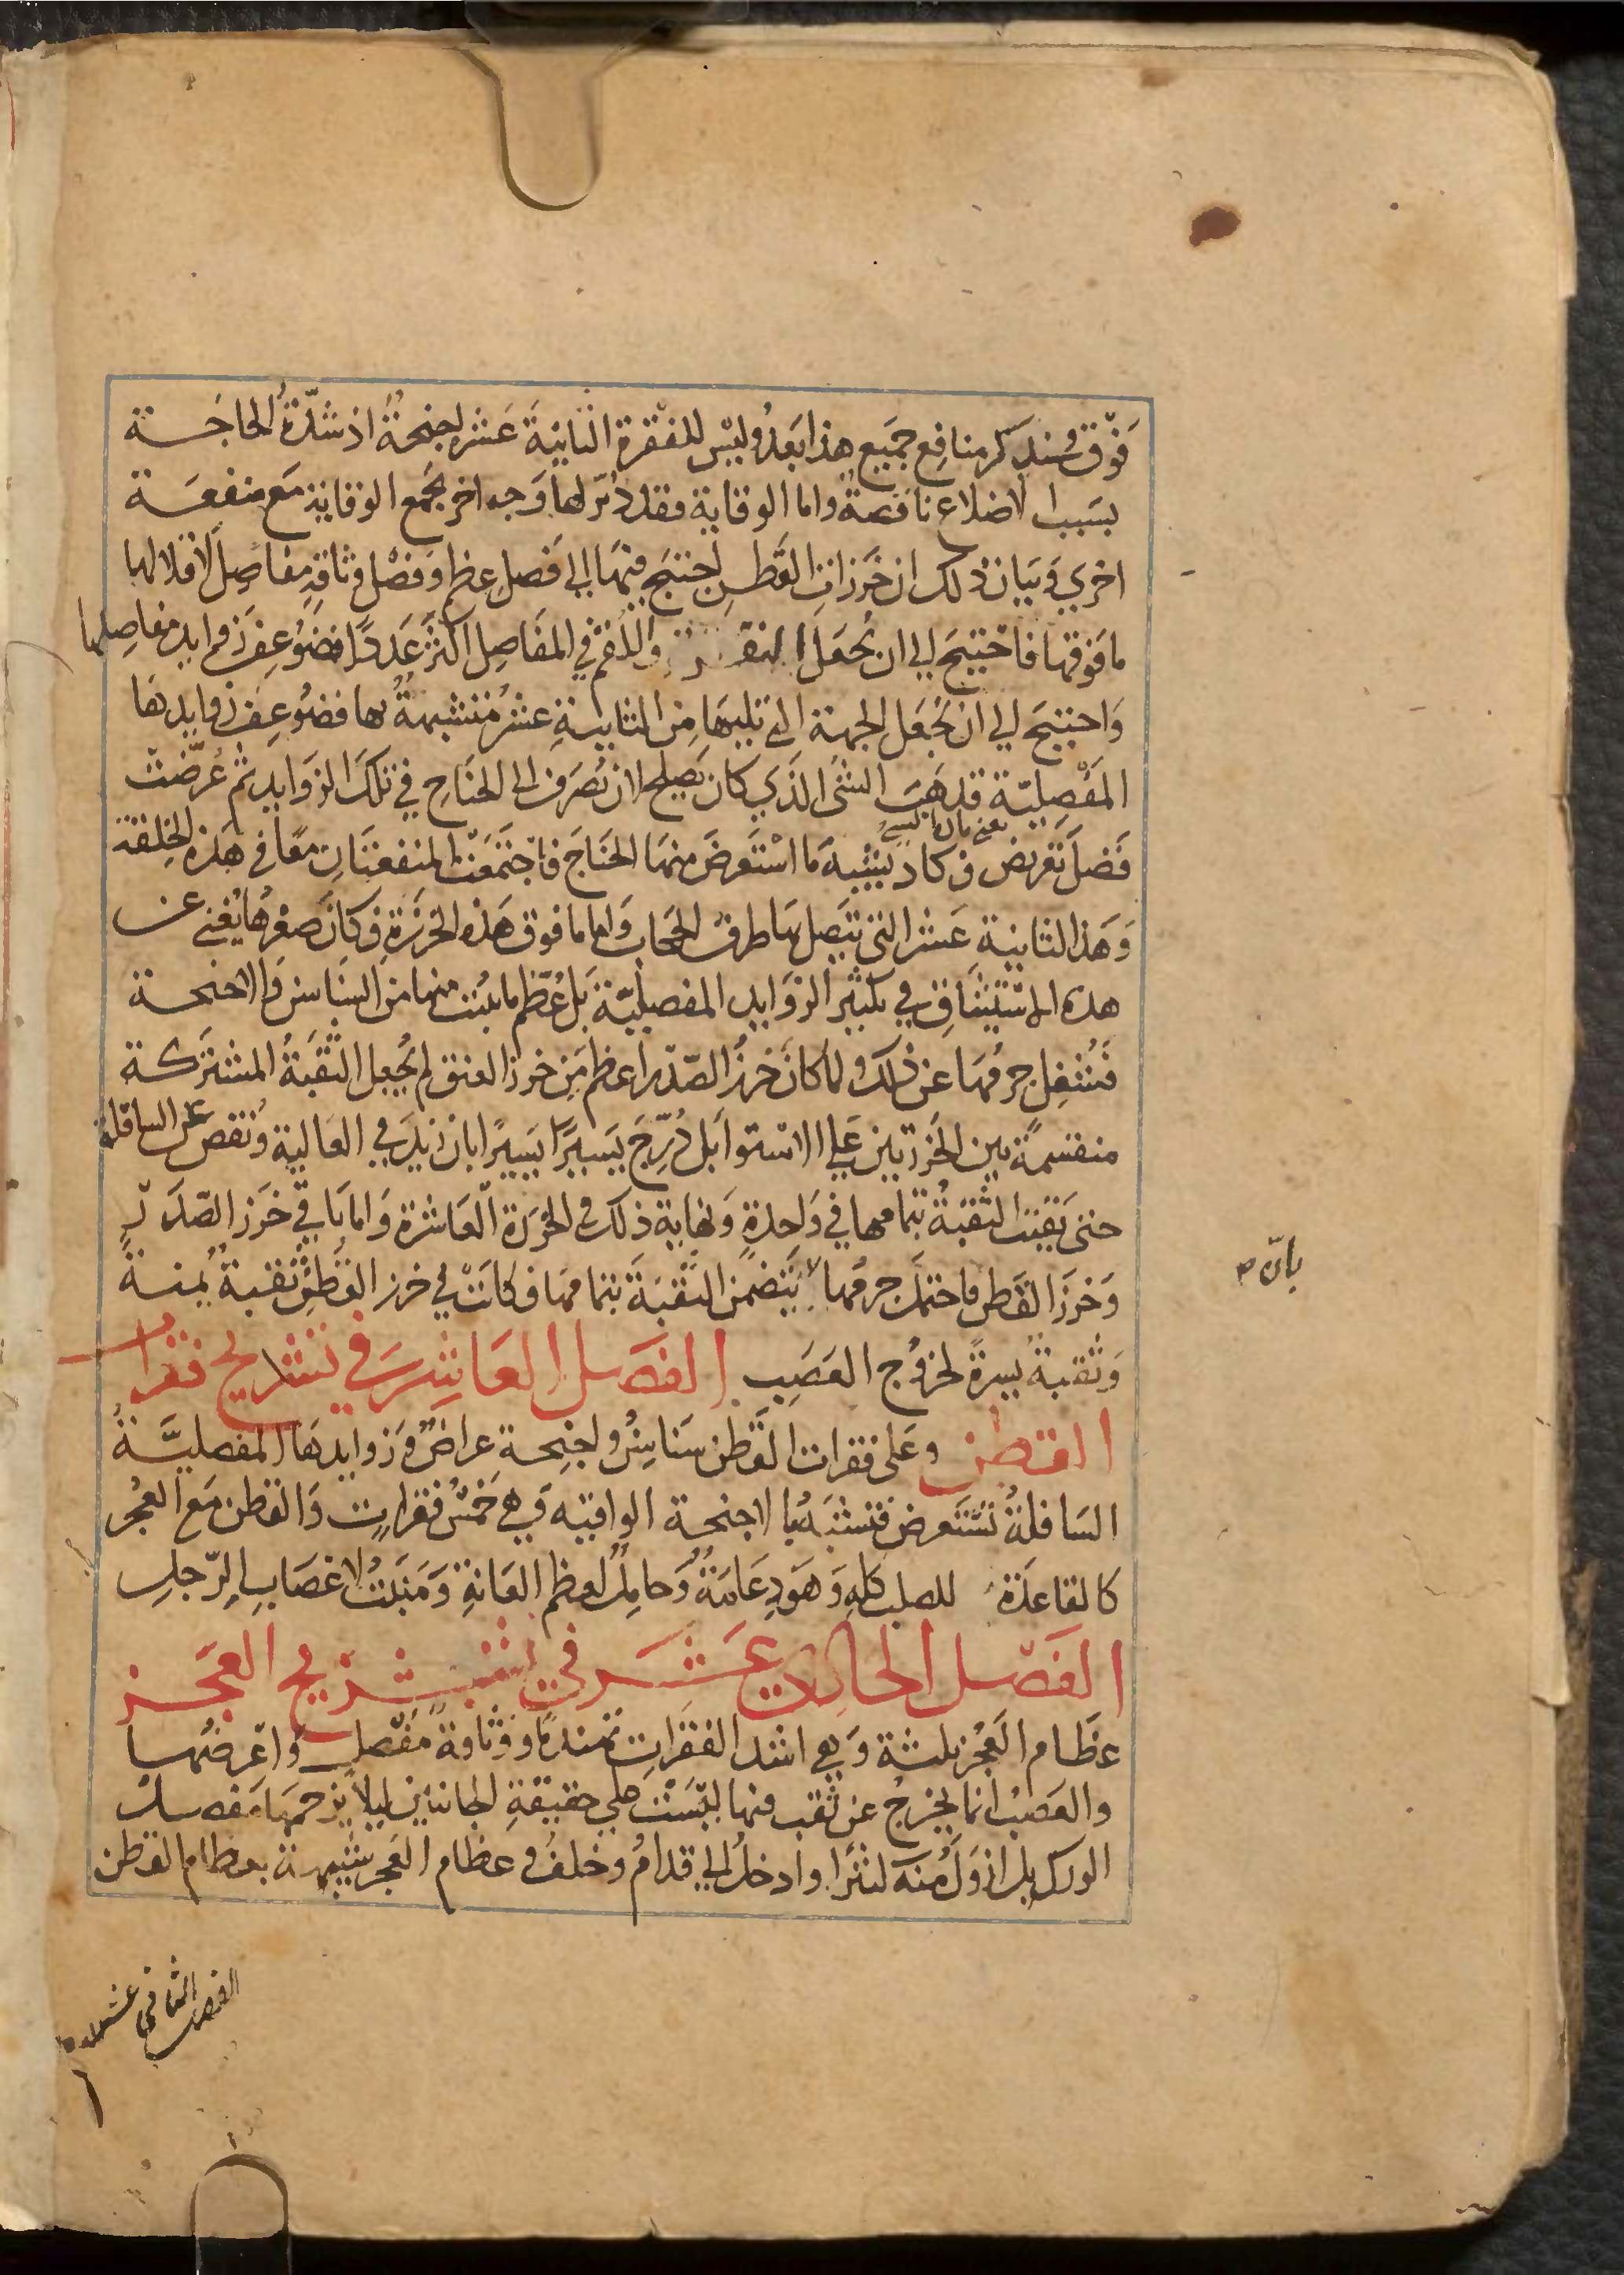 فوق وسنذكر منافع جميع هذا بعد وليس للفقرة الثانية عشر اجنحة اذ شدّة الحاجة
بسبب الاضلاع ناقصة واما الوقاية فقد دُبّر لها وجه اخر يجمع الوقاية مع منفعة
اخري وبيان ذلك ان خرزات القطن احتيج فيها الي فصل عظم وفضل وثاقة مفاصل لاقلالها
ما فوقها فاحتيج الي ان تجعل والقم في المفاصل اكثر عددا فضوعف زوايد مفاصلها
واحتيج الي ان تجعل الجهة التي تليها من الثانية عشر متشبهة بها فضوعف زوايدها
المفصلية فذهب الشئ الذي كان يصلح لان تصرف الى الجناح في تلك الزوايد ثم عرّضت
فضل تعريض وكاد يشبه ما استعرض منها الجناح فاجتمعت المنفعتان معا في هذه الخلقة
وهذا الثانية عشر التي يتصل بها طرف الحجاب واما ما فوق هذه الخرزة فكان صغرها يغني عن
هذه الاستيثاق في تكثير الزوايد المفصليّة بل عظم ما ينبت منها من السناسن والاجنحة
فشغل جرمها عن ذلك ولما كان خرز الصّدر اعظم من خرز العنق لم يجعل الثقبة المشتركة
منقسمة بين الخرزتين علي الاستوا بل دُرّج يسيرًا يسيرًا بان زيد في العالية ونقص عن السافلة
حتى بقيت الثقبة بتمامها في واحدة ونهاية ذلك في الخرزة العاشرة واما باقي خرز الصّدر
وخرز القطن فاحتمل جرمها لا يتضمن الثقبة بتمامها فكانت في خرز القطن ثقبة يمنة
بان
وثقبة يسرة لخروج العصب الفصل العاشر في تشريح فقرات
القطن وعلى فقرات القطن سناسن واجنحة عراض وزوايدها المفصليّة
السافلة تستعرض فتشبه با لاجنحة الواقيه وهي خمس فقرات والقطن مع العجز
كالقاعدة للصلب كله وهو دعامة وحامل لعظم العانة ومنبت لاعصاب الرّجل
الفصل الحادي عشر في تشريح العجز
عظام العجز ثلثة وهي اشد الفقرات تهندما ووثاقة مفصل واعرضها
والعصب انما يخرج عن ثقب فيها ليست علي حقيقة الجانبين ليلا يزحمها مفصل
الورك بل ازول منه كثيرا وادخل الي قدام وخلف و عظام العجز شبيهة بعظام القطن
الفصل الثاني عشر